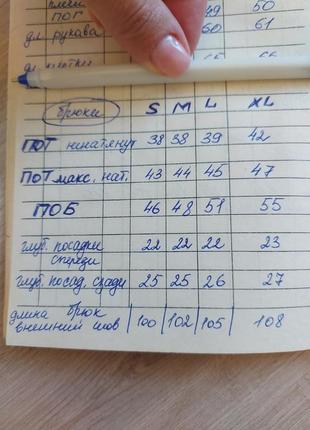 ПОГ 49 50
дл. рукава 60 61
брюки S M L XL
ПОТ ненатянут 38 38 39 42
ПОТ макс. нат. 43 44 45 47
ПОБ 46 48 51 55
глуб. посадки спереди 22 22 22 23
глуб. посад. сзади 25 25 26 27
длина брюк
внешний шов 100 102 105 108